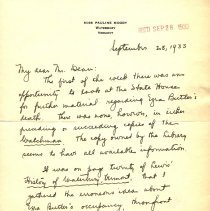 ROSE PAULINE MOODY
WATERBURY
VERMONT
September 28, 1933
My dear Mr. Dean:
The first of the week there was an
opportunity to look at the State House
for further material regarding Ezra Butler's
death. There was none, however, in either
preceding or succeeding copies of the
Watchman. The copy owned by the Library
seems to have all available information.
It was on page twenty of Lewis'
History of Waterbury, Vermont, that I
gathered the erroneous idea about
Ezra Butler's occupancy, throughout